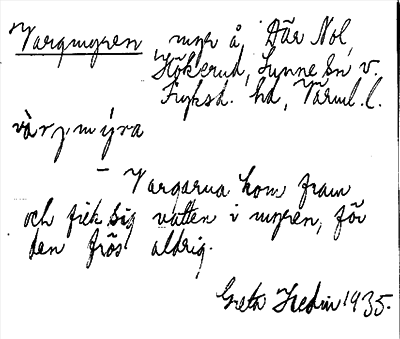 Vargmyren, myr å, Där Nol,
Hökerud, Sunne Sn v.
Fryksd. hd, Värml. l.
vàrjmýra
– Vargarna kom fram
och fick sig vatten i myren, för
den frös aldrig.
Greta Hedin 1935.